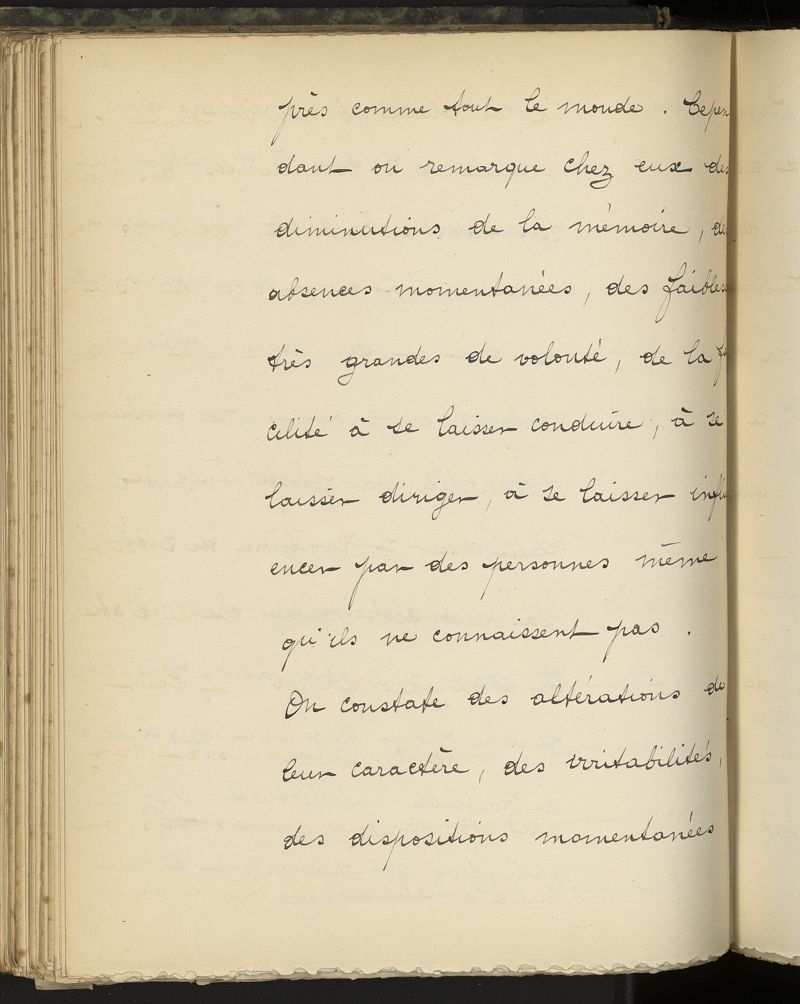 près comme tout le monde. Cepen
dant on remarque chez eux des
diminutions de la mémoire, des
absences momentanées, des faibless
très grandes de volonté, de la fa
cilité à se laisser conduire, à se
laisser diriger, à se laisser influ
encer par des personnes même
qu'ils ne connaissent pas.
On constate des altérations de
leur caractère, des irritabilités,
des dispositions momentanées